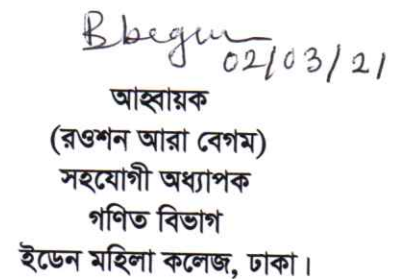 Bbegum
02/03/21
আহ্বায়ক
(রওশন আরা বেগম)
সহযোগী অধ্যাপক
গণিত বিভাগ
ইডেন মহিলা কলেজ, ঢাকা।